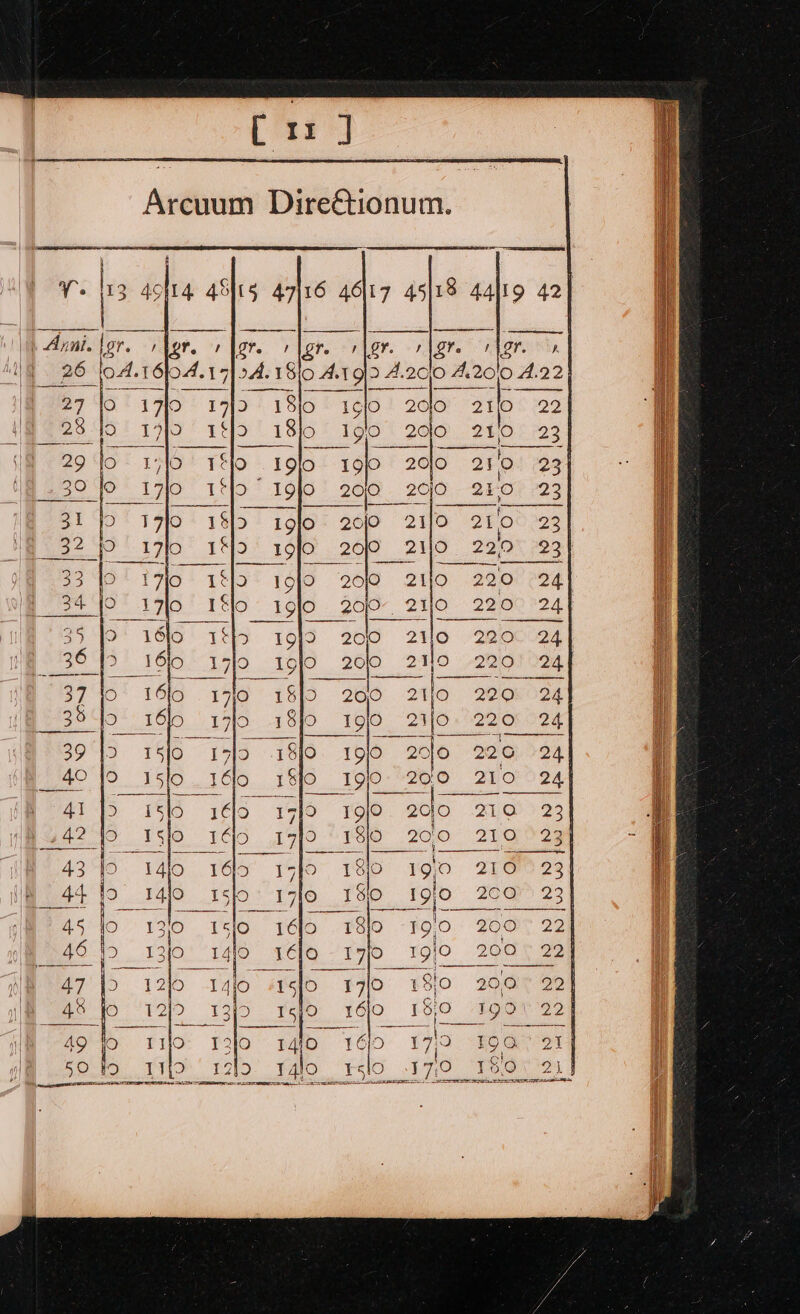 [ 11 ]
Arcuum Directionum.
♈. 13 49 14 48 15 47 16 46 17 45 18 44 19 42
Anni. gr. ' gr. ' gr. ' gr. ' gr. ' gr. ' gr. '
26 0A.16 0A.17 0A.18 0A.19 0A.20 0A.20 0A.22
27 0 17 0 17 0 18 0 19 0 20 0 21 0 22
28 0 17 0 18 0 18 0 19 0 20 0 21 0 23
29 0 17 0 18 0 19 0 19 0 20 0 21 0 23
30 0 17 0 18 0 19 0 20 0 20 0 21 0 23
31 0 17 0 18 0 19 0 20 0 21 0 21 0 23
32 0 17 0 18 0 19 0 20 0 21 0 22 0 23
33 0 17 0 18 0 19 0 20 0 21 0 22 0 24
34 0 17 0 18 0 19 0 20 0 21 0 22 0 24
35 0 16 0 18 0 19 0 20 0 21 0 22 0 24
36 0 16 0 17 0 19 0 20 0 21 0 22 0 24
37 0 16 0 17 0 18 0 20 0 21 0 22 0 24
38 0 16 0 17 0 18 0 19 0 21 0 22 0 24
39 0 15 0 17 0 18 0 19 0 20 0 22 0 24
40 0 15 0 16 0 18 0 19 0 20 0 21 0 24
41 0 15 0 16 0 17 0 19 0 20 0 21 0 23
42 0 15 0 16 0 17 0 18 0 20 0 21 0 23
43 0 14 0 16 0 17 0 18 0 19 0 21 0 23
44 0 14 0 15 0 17 0 18 0 19 0 20 0 23
45 0 13 0 15 0 16 0 18 0 19 0 20 0 22
46 0 13 0 14 0 16 0 17 0 19 0 20 0 22
47 0 12 0 14 0 15 0 17 0 18 0 20 0 22
48 0 12 0 13 0 15 0 16 0 18 0 19 0 22
49 0 11 0 13 0 14 0 16 0 17 0 19 0 21
50 0 11 0 12 0 14 0 15 0 17 0 18 0 21